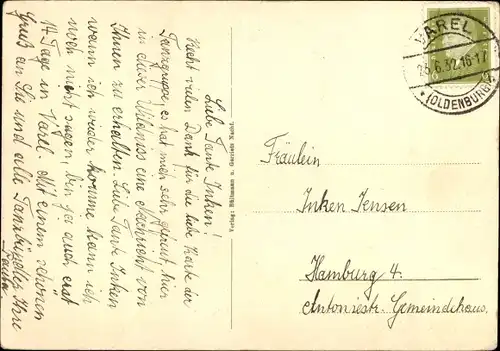 Liebe Tante Inken!
Recht vielen Dank für die liebe Karte der
Tanzgruppe, es hat mich sehr gefreut, hier
in einer Nachricht von
Ihnen zu erhalten. Liebe Tante Inken
wann ich wieder komme kann ich
noch nicht sagen, bin ja auch erst
14 Tage in Varel. Mit einem schönen
Gruß an Sie und alle Ihre
Verlag: Bültmann u. Gerriets Nachf.
VAREL
25.6.32.16-17
* (OLDENBURG)
Fräulein
Inken Jensen
Hamburg 4.
Antoniestr. Gemeindehaus.